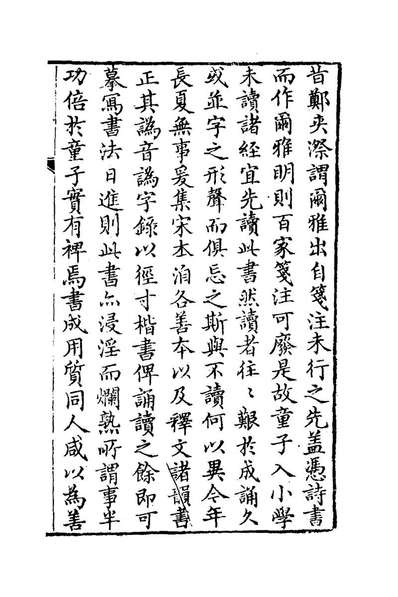 昔鄭夾漈謂爾雅出自箋注未行之先蓋憑詩書
而作爾雅明則百家箋注可廢是故童子入小學
未讀諸經宜先讀此書然讀者往〻艱於成誦久
或並字之形聲而俱忘之斯與不讀何以異今年
長夏無事爰集宋本洎各善本以及釋文諸韻書
正其譌音譌字錄以徑寸楷書俾誦讀之餘即可
摹寫書法日進則此書亦浸淫而爛熟所謂事半
功倍於童子實有裨焉書成用質同人咸以為善